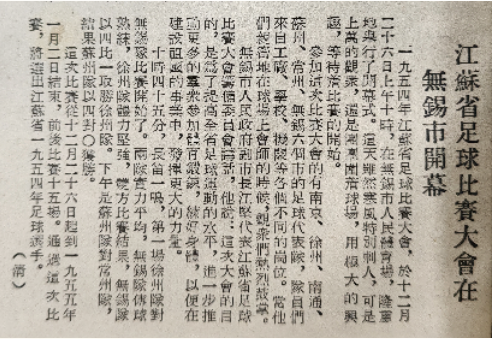 江蘇省足球比賽大會在
無錫市開幕
一九五四年江蘇省足球比賽大會，於十二月
二十六日上午十時，在無錫市人民體育場，隆重
地舉行了開幕式。這天雖然寒風特別刺人，可是
上萬的觀衆，還是團團圍着球場，用極大的興
趣，等待着比賽的開始。
參加這次比賽大會的有南京、徐州、南通、
蘇州、常州、無錫六個市的足球代表隊，隊員們
來自工廠、學校、機關等各個不同的崗位。當他
們整齊地在球場上會師的時候，觀衆們熱烈鼓掌。
無錫市人民政府副市長江堅代表江蘇省足球
比賽大會籌備委員會講話，他說：這次大會的目
的，是爲了提高全省足球運動的水平，進一步推
動更多的羣衆參加體育鍛鍊，鍛好身體，以便在
建設祖國的事業中，發揮更大的力量。
十時四十五分，長笛一鳴，第一場徐州隊對
無錫隊比賽開始了。兩隊實力平均，無錫隊傳球
熟練，徐州隊體力堅強，雙方比賽結果，無錫隊
以四比一取勝徐州隊。下午是蘇州隊對常州隊，
結果蘇州隊以四對〇獲勝。
這次比賽從十二月二十六日起到一九五五年
一月二日結束，前後比賽十五場。通過這次比
賽，將選出江蘇省一九五四年足球選手。